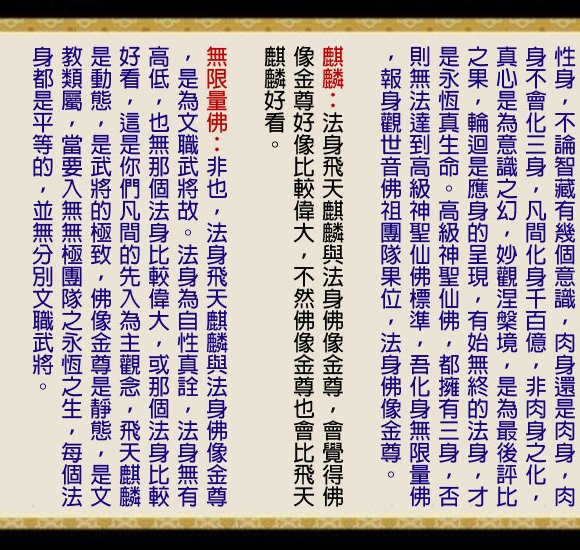 性身，不論智藏有幾個意識，肉身還是肉身，肉
身不會化三身，凡間化身千百億，非肉身之化，
真心是為意識之幻，妙觀涅槃境，是為最後評比
之果，輪迴是應身的呈現，有始無終的法身，才
是永恆真生命。高級神聖仙佛，都擁有三身，否
則無法達到高級神聖仙佛標準，吾化身無限量佛
，報身觀世音佛祖團隊果位，法身佛像金尊。
麒麟：法身飛天麒麟與法身佛像金尊，會覺得佛
像金尊好像比較偉大，不然佛像金尊也會比飛天
麒麟好看。
無限量佛：非也，法身飛天麒麟與法身佛像金尊
，是為文職武將故。法身為自性真詮，法身無有
高低，也無那個法身比較偉大，或那個法身比較
好看，這是你們凡間的先入為主觀念，飛天麒麟
是動態，是武將的極致，佛像金尊是靜態，是文
教類屬，當要入無無極團隊之永恆之生，每個法
身都是平等的，並無分別文職武將。